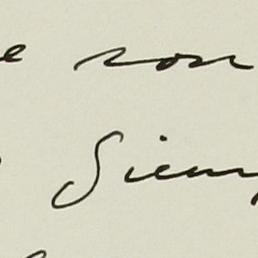 e son
Siem